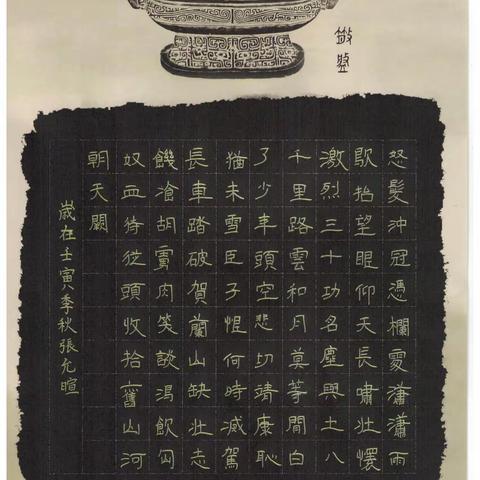 怒髮沖冠憑欄處瀟瀟雨
歇抬望眼仰天長嘯壯懷
激烈三十功名塵與土八
千里路雲和月莫等閒白
了少年頭空悲切靖康恥
猶未雪臣子恨何時滅駕
長車踏破賀蘭山缺壯志
饑飡胡虜肉笑談渴飲匈
奴血待從頭收拾舊山河
朝天闕
歲在壬寅季秋張允暄